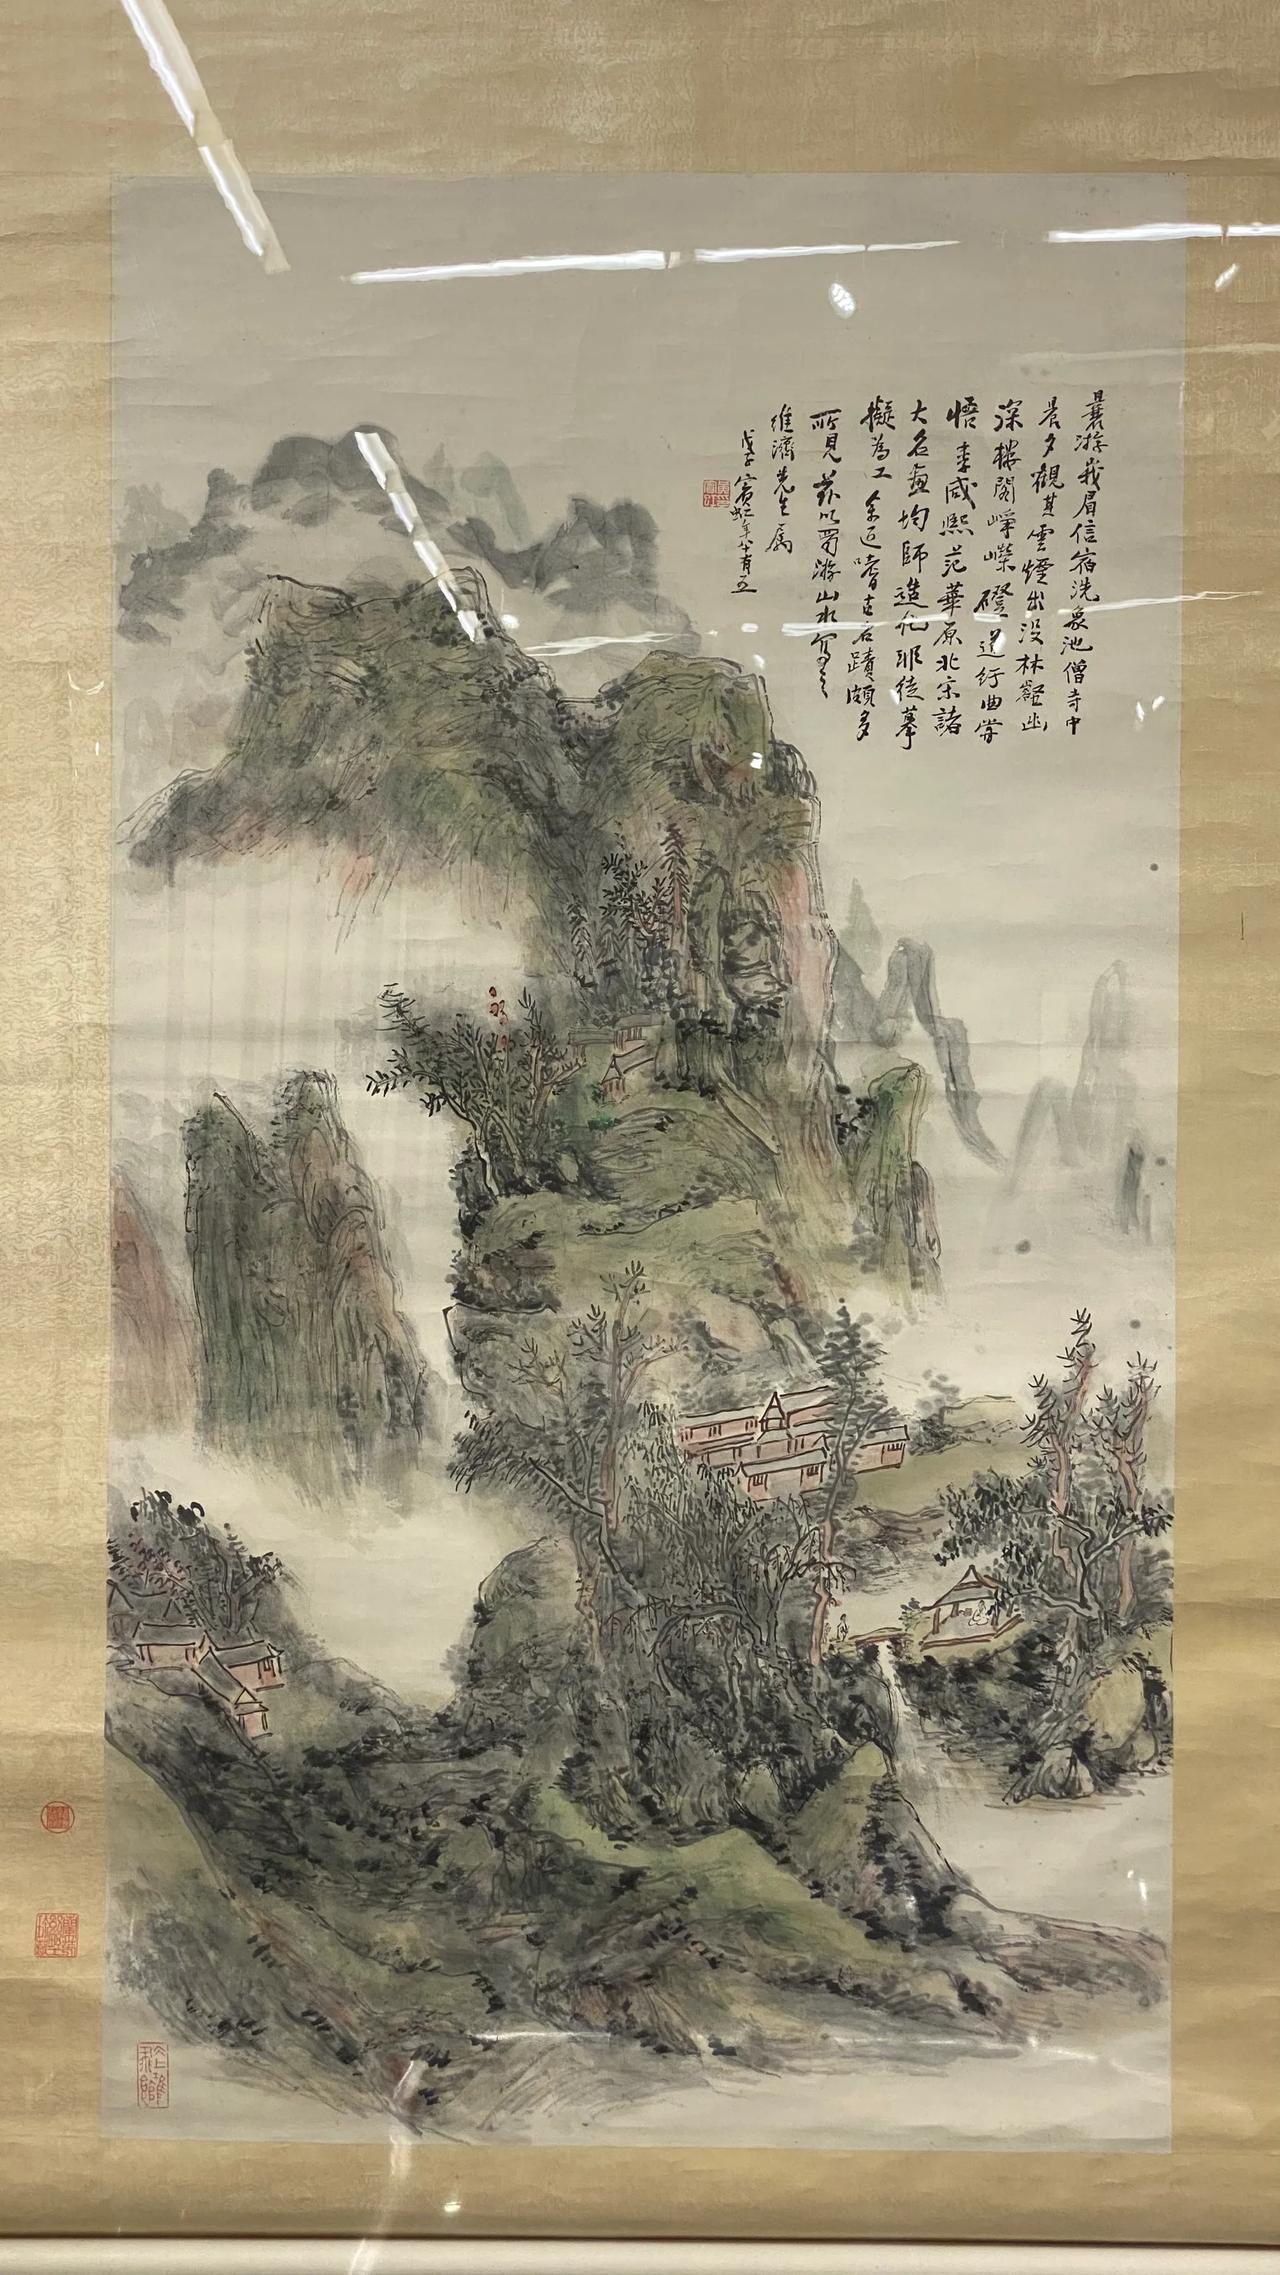 曩游峩眉信宿洗象池僧寺中
晨夕觀其雲煙出没林壑幽
深樓閣崢嶸磴道紆曲嘗
悟李咸熙范華原北宋諸
大名畫均師造化非徒摹
擬為工余近嗜古名蹟頗多
所見茲以蜀游山水寫之
維濟先生屬
戊子賓虹年八十有五